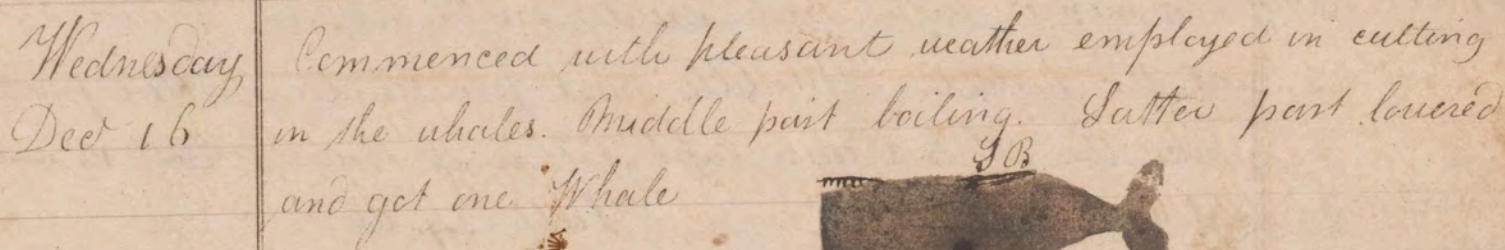 Wednesday
Dec 16
Commenced with pleasant weather employed in cutting
in the whales. Middle part boiling. Latter part lowered
and got one Whale
S B